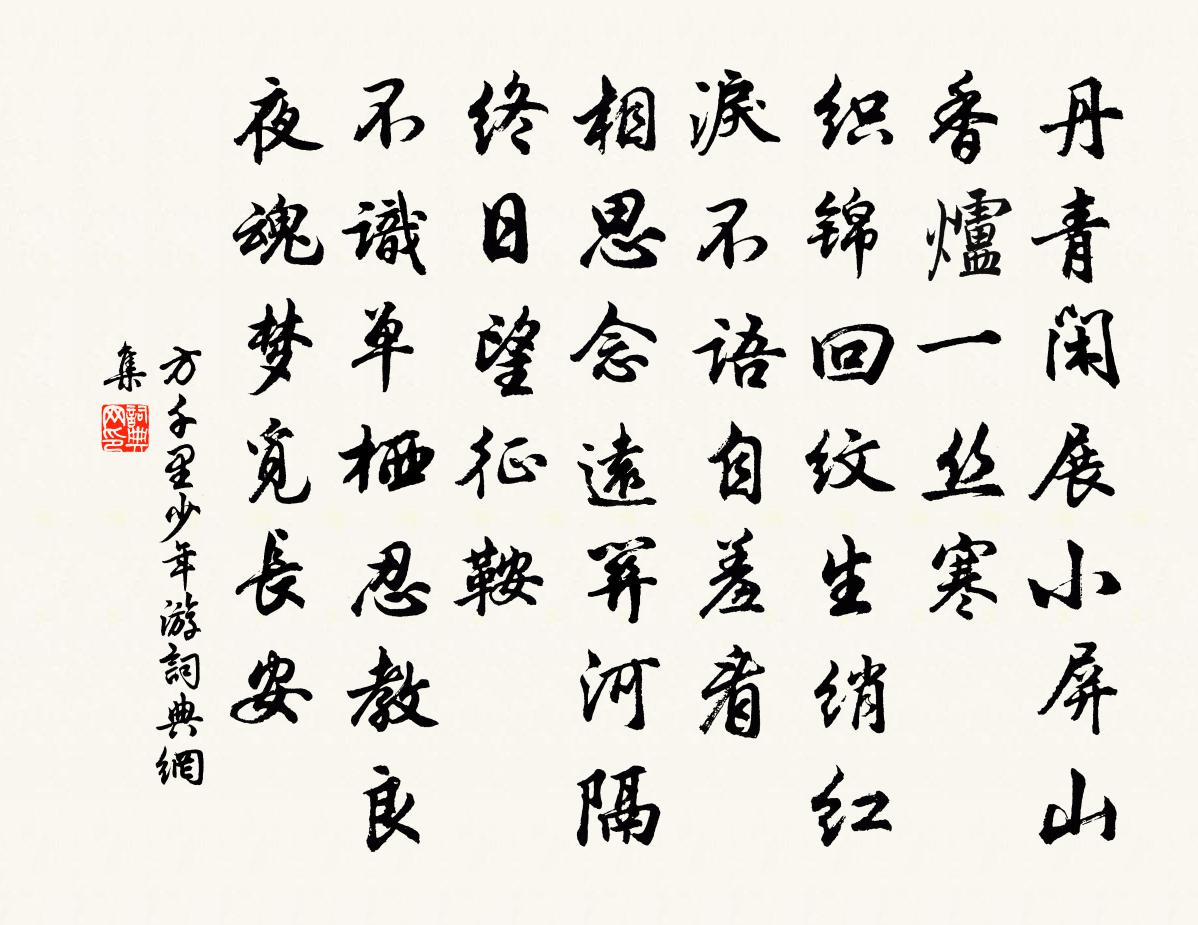 丹青闲展小屏山
香爐一丝寒
织锦回纹生绡红
淚不语自羞看
相思念遠關河隔
终日望征鞍
不識单栖忍教良
夜魂梦觅長安
方千里少年游詞典網
集
詞典网印